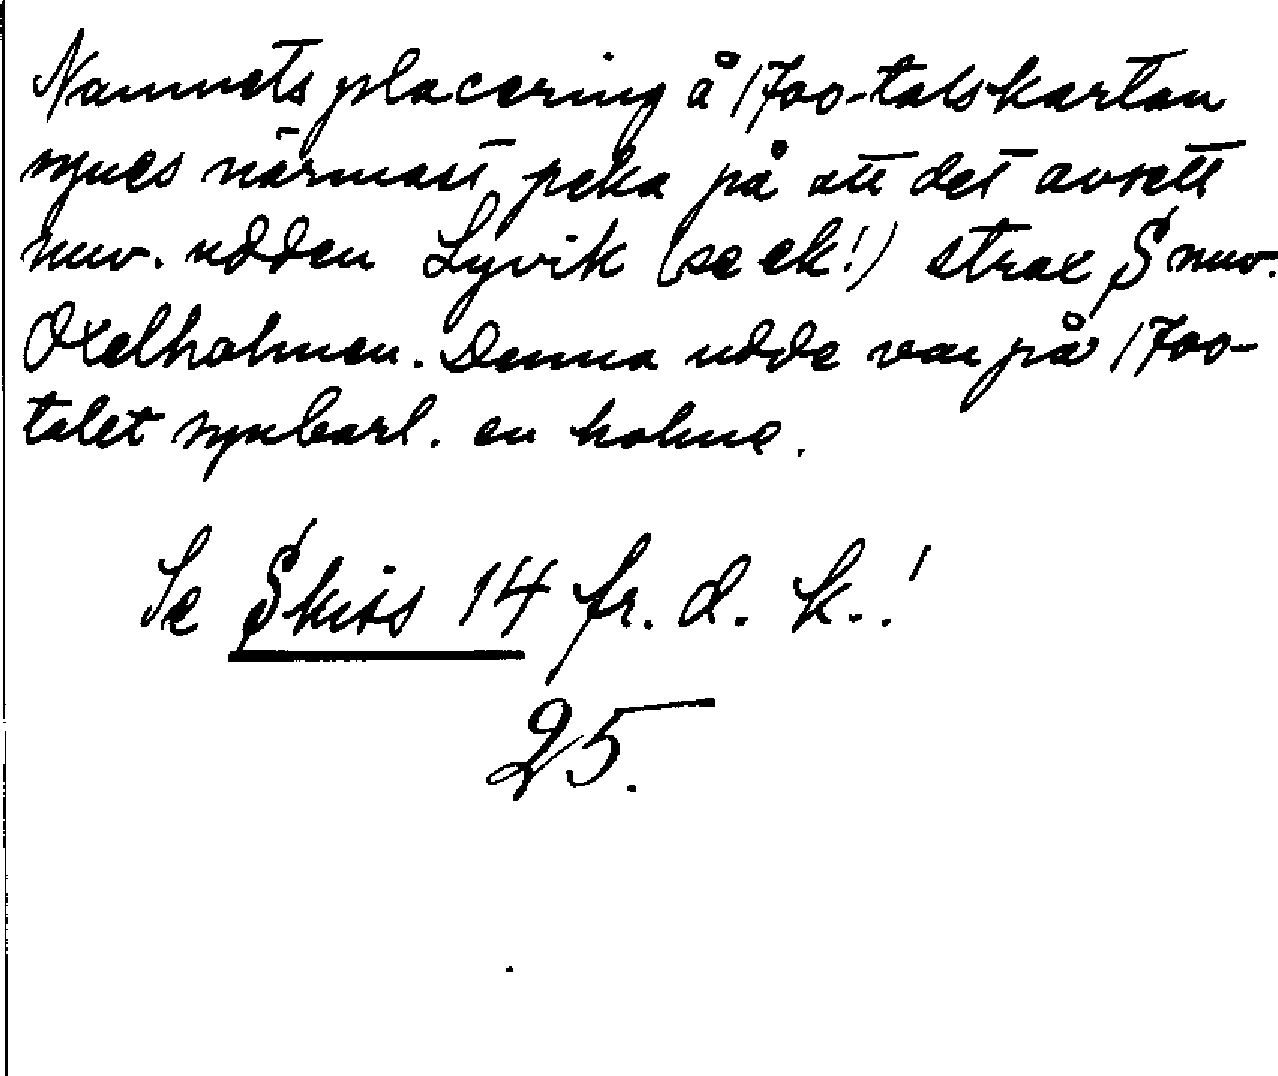 Namnets placering å 1700-talskartan
synes närmast peka på att det avsett
nuv. udden Lyvik (se ek!) strax S nuv.
Oxelholmen. Denna udde var på 1700-
talet synbarl. en holme.
Se Skiss 14 fr. d. k.!
25.